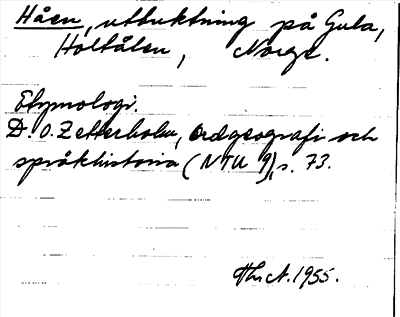 Håen, utbuktning på Gula,
Holtålen, Norge.
Etymologi.
D. O. Zetterholm, Ordgeografi och
språkhistoria (NTU 9), s. 73.
1955.